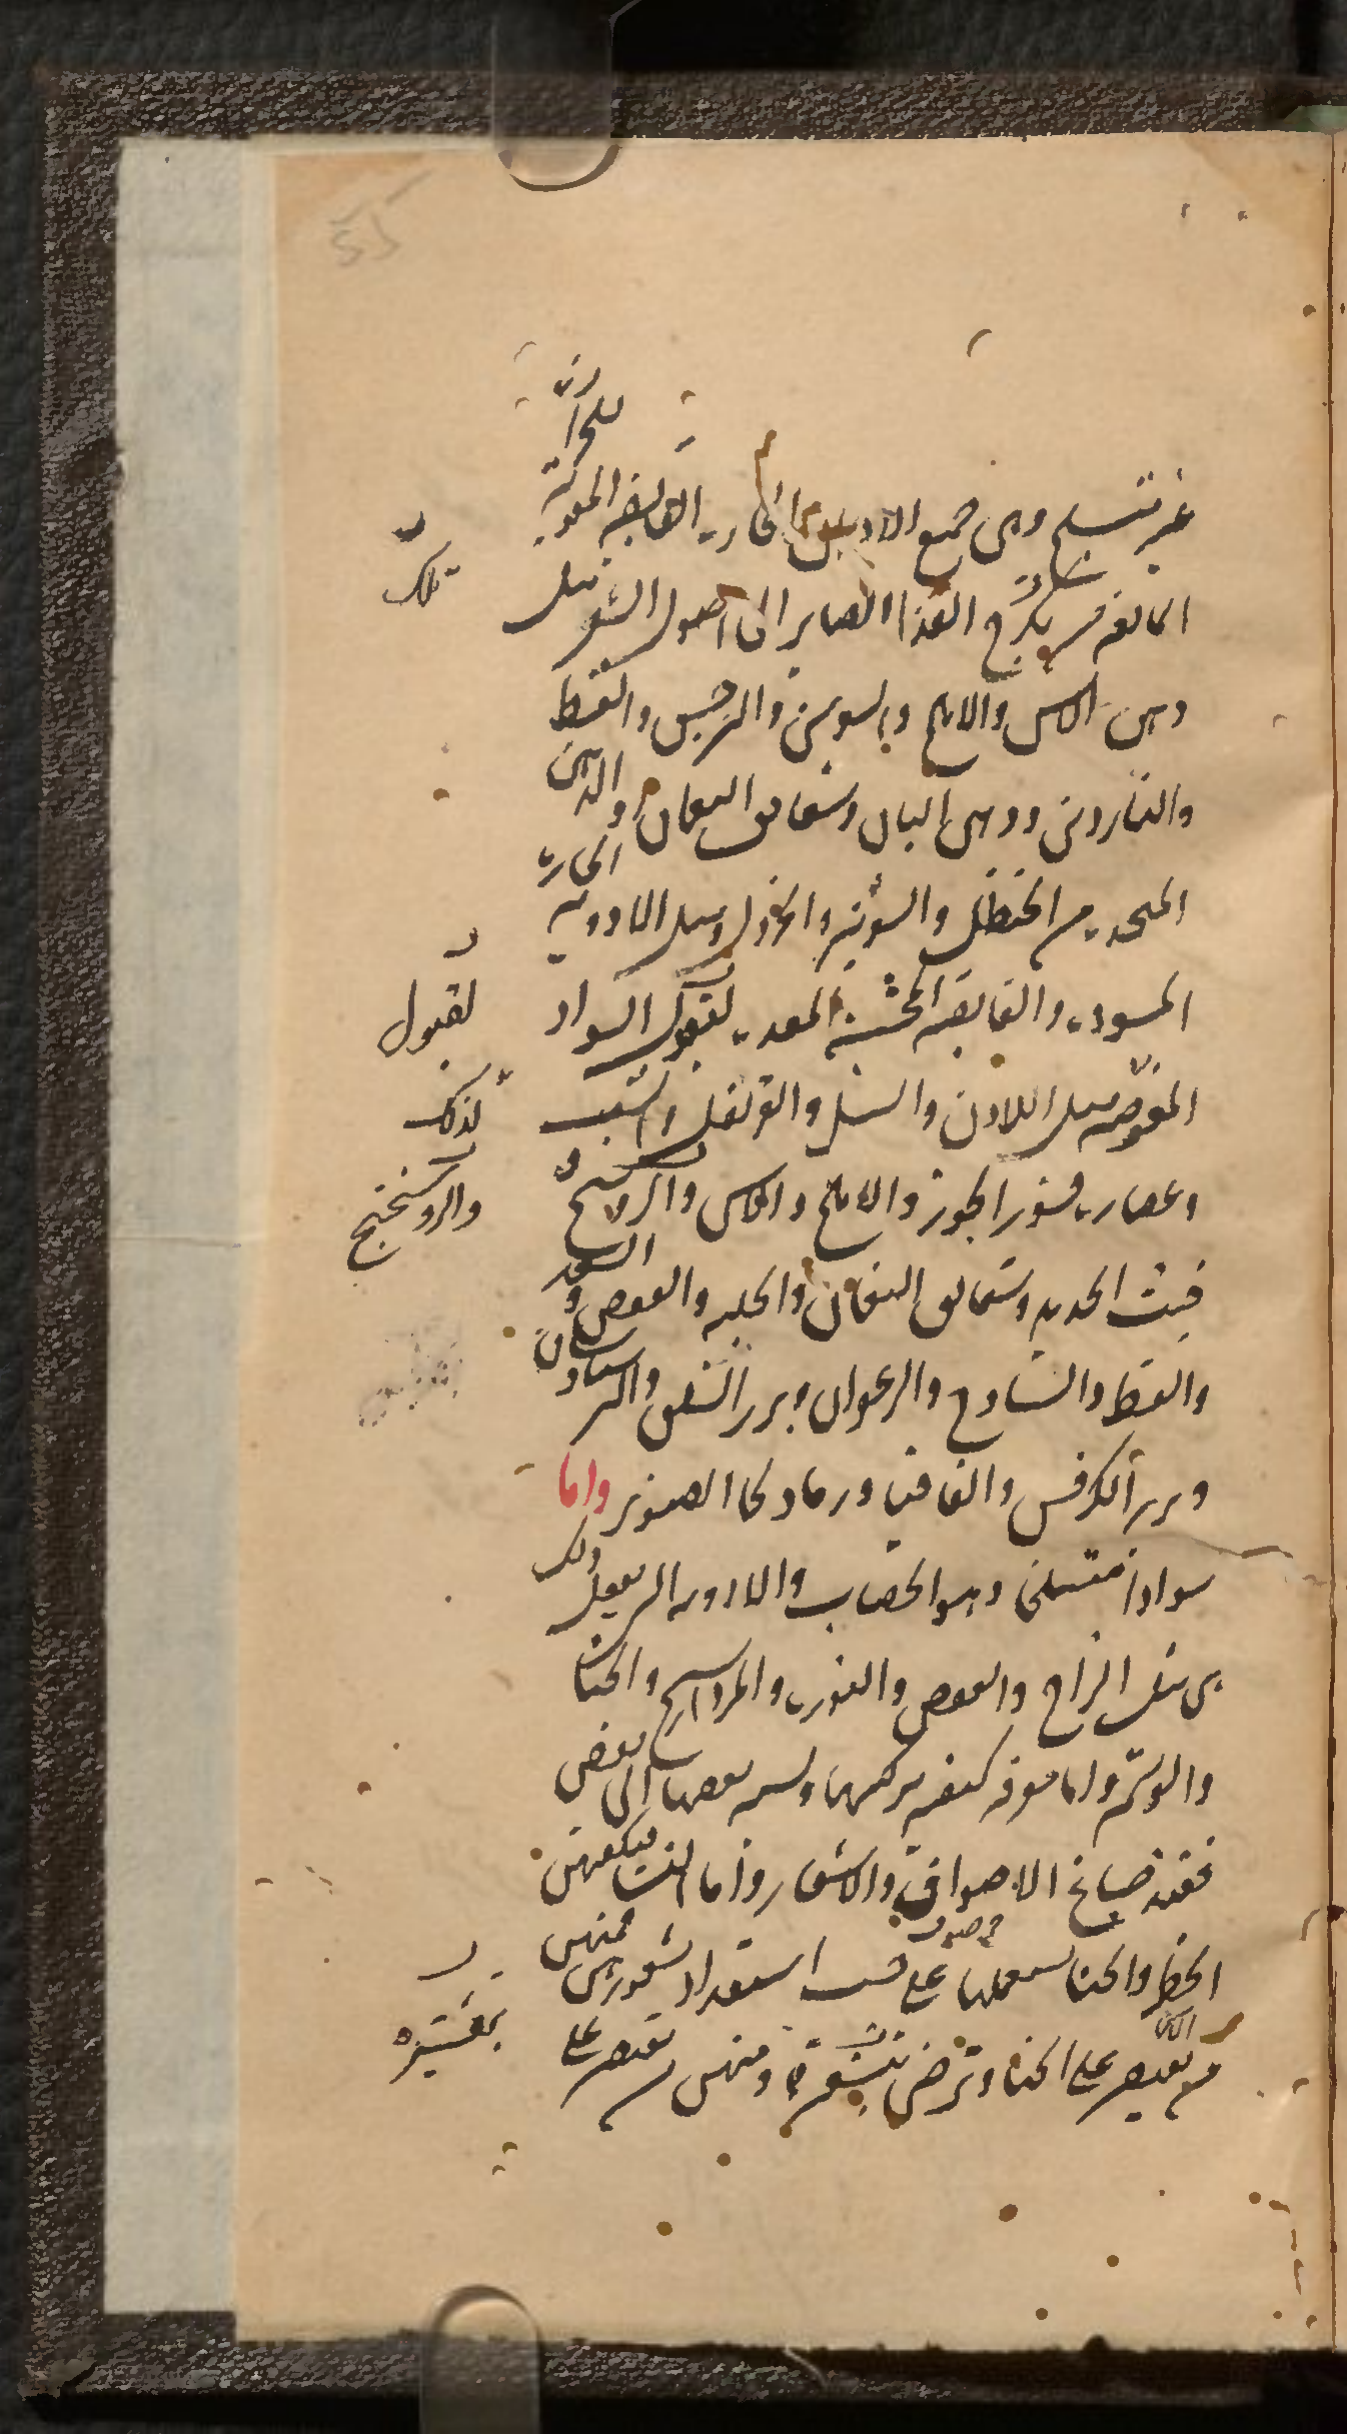 55
غير منسلخ وهي جميع الادهان الحارة القابضة المقوية للحرارة
المانعة من تكرج الغذا الصاير الى اصول الشعر مثل
دهن الاس والاملج والسوسن والنرجس والقسط
والناردين ودهن البان وشقايق النعمان والدهن
المتخد من الحنظل والشونيز والخردل ومثل الادوية الحارة
المسودة والقابضة المحسنة المعدة لقبول السواد
المغوصة مثل اللادن والسنبل والقرنفل والشب
وعصارة قشور الجوز والاملج والاس والروسختج
خبث الحديد وشقايق النعمان والحلبة والعفص والسعد
والقسط والسادج والزعفران وبزر السلق والبرسياوشان
وبزر الكرفس والقاقيا ورماد لحا الصنوبر واما
سوادا منسلخا وهو الخضاب والادوية التي تفعل ذلك
هي مثل الزاج والعفص والنورة والمرداسنج والحنا
والوشم واما معرفة كيفية تركيبها ونسبة بعضها الى بعض
فعند صباغ الاصواف والاشعار واما النسا فيكفيهن
الخطر والحنا يستعملنها على حسب استعداد شعورهن فمنهن
من يقتصر على الحنا وترضى بتشقيره ومنهن من يقتصر على
تلك
لقبول
لذلك
والروسختج
بتشقيره